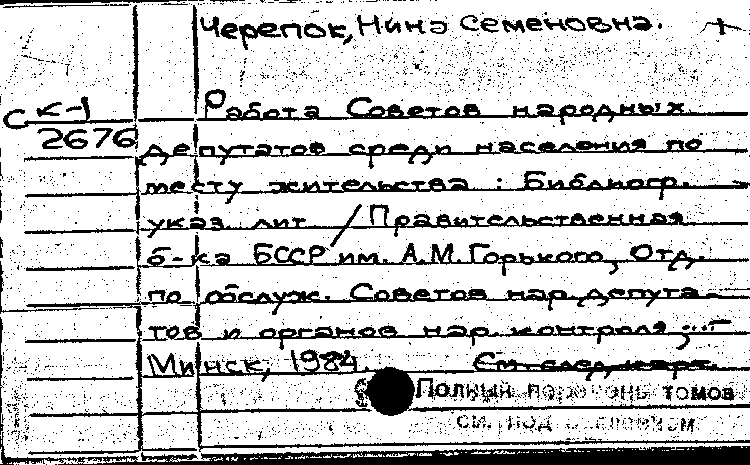 Черепок, Нина Семеновна.
СК-1
2676
Работа Советов народных
депутатов среди населения по
месту жительства : Библиогр.
указ. лит / Правительственная
б-ка БССР им. А.М. Горького, Отд.
по обслуж. Советов нар. депута-
тов и органов нар. контроля ;...
Минск, 1984. См. след. карт.
Полный перечень томов
см. под